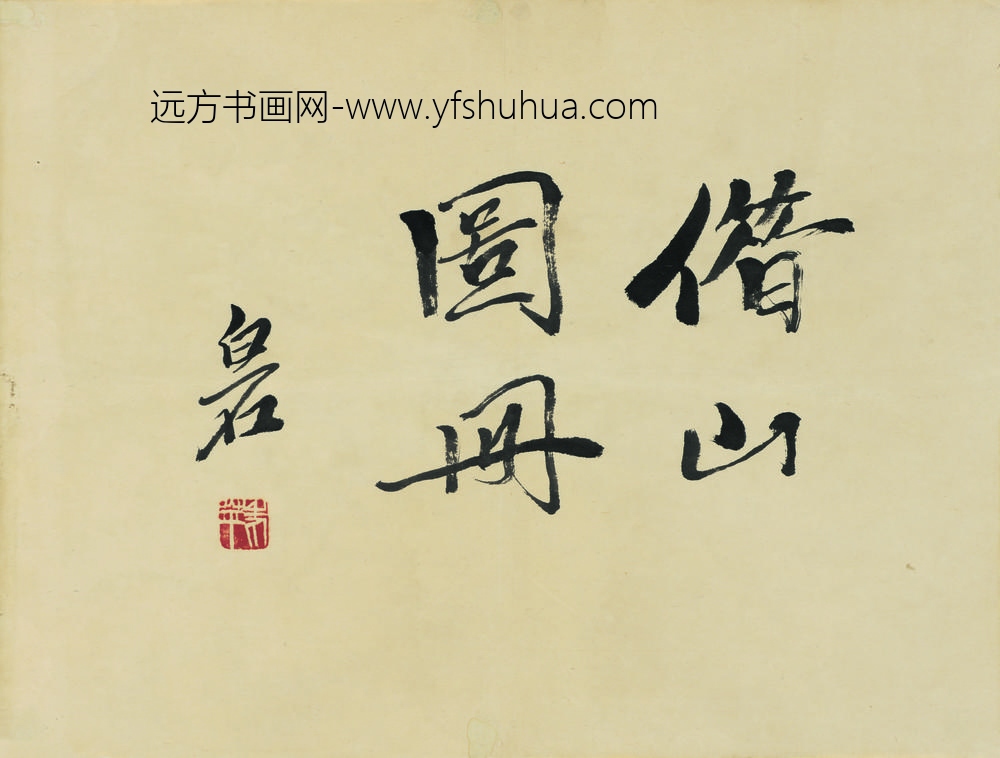 远方书画网-www.yfshuhua.com
借山
圖冊
白石